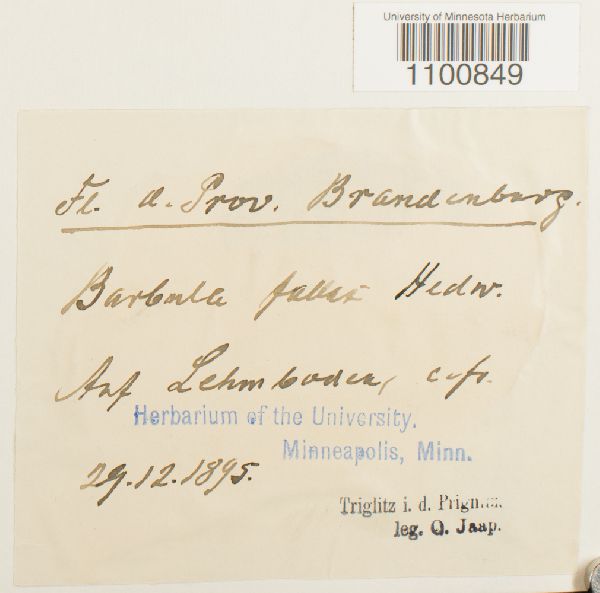 University of Minnesota Herbarium
1100849
Fl. d. Prov. Brandenburg.
Barbula fallax Hedw.
Auf Lehmboden, c. fr.
Herbarium of the University.
Minneapolis, Minn.
29.12.1895.
Triglitz i. d.
leg. O. Jaap.